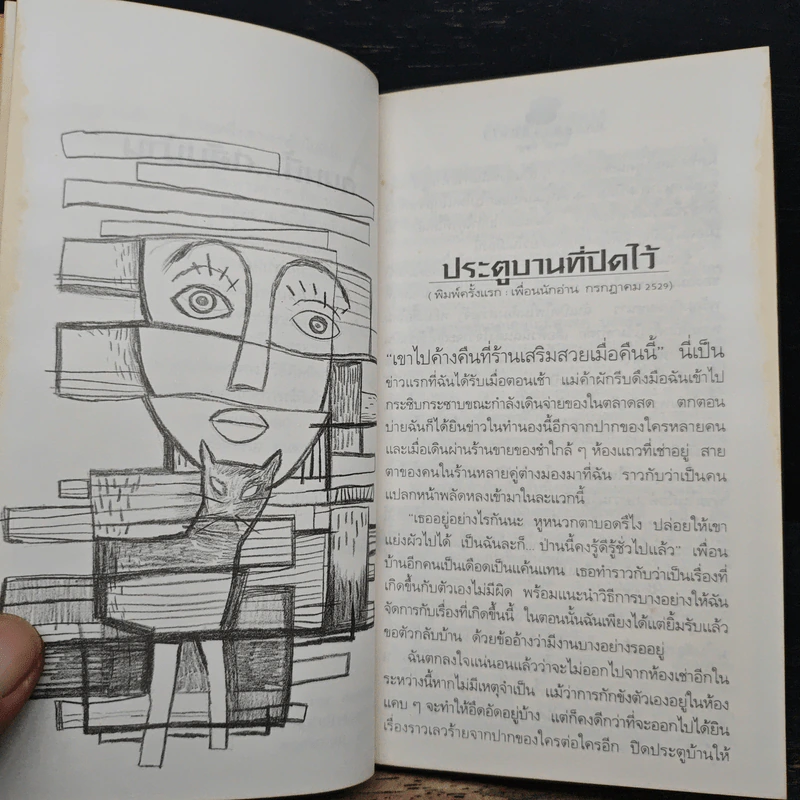 ประตูบานที่ปิดไว้
(พิมพ์ครั้งแรก : เพื่อนนักอ่าน กรกฎาคม 2529)
“เขาไปค้างคืนที่ร้านเสริมสวยเมื่อคืนนี้” นี่เป็น
ข่าวแรกที่ฉันได้รับเมื่อตอนเช้า แม่ค้าผักรีบดึงมือฉันเข้าไป
กระซิบกระซาบขณะกำลังเดินจ่ายของในตลาดสด ตกตอน
บ่ายฉันก็ได้ยินข่าวในทำนองนี้อีกจากปากของใครหลายคน
และเมื่อเดินผ่านร้านขายของชำใกล้ ๆ ห้องแถวที่เช่าอยู่ สาย
ตาของคนในร้านหลายคู่ต่างมองมาที่ฉัน ราวกับว่าเป็นคน
แปลกหน้าพลัดหลงเข้ามาในละแวกนี้
“เธออยู่อย่างไรกันนะ หูหนวกตาบอดรึไง ปล่อยให้เขา
แย่งผัวไปได้ เป็นฉันละก็... ป่านนี้คงรู้ดีรู้ชั่วไปแล้ว” เพื่อน
บ้านอีกคนเป็นเดือดเป็นแค้นแทน เธอทำราวกับว่าเป็นเรื่องที่
เกิดขึ้นกับตัวเองไม่มีผิด พร้อมแนะนำวิธีการบางอย่างให้ฉัน
จัดการกับเรื่องที่เกิดขึ้นนี้ ในตอนนั้นฉันเพียงได้แต่ยิ้มรับแล้ว
ขอตัวกลับบ้าน ด้วยข้ออ้างว่ามีงานบางอย่างรออยู่
ฉันตกลงใจแน่นอนแล้วว่าจะไม่ออกไปจากห้องเช่าอีกใน
ระหว่างนี้หากไม่มีเหตุจำเป็น แม้ว่าการกักขังตัวเองอยู่ในห้อง
แคบ ๆ จะทำให้อึดอัดอยู่บ้าง แต่ก็คงดีกว่าที่จะออกไปได้ยิน
เรื่องราวเลวร้ายจากปากของใครต่อใครอีก ปิดประตูบ้านให้